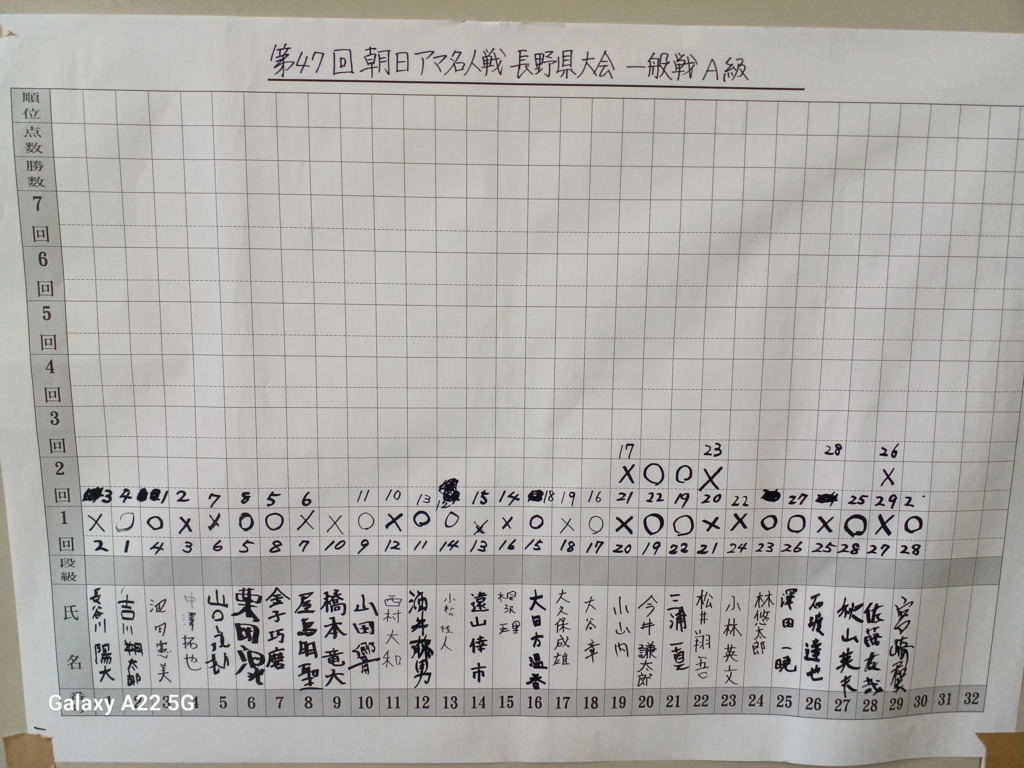 第47回 朝日アマ名人戦 長野県大会 一般戦 A級
順位
点数
勝数
7回
6回
5回
4回
3回
17 23 28 26
2回
× ○ ○ × ×
3 4 1 2 7 8 5 6 11 10 13 12 15 14 18 19 16 21 22 19 20 22 27 25 29 2
1回
× ○ ○ × × ○ ○ × × ○ × ○ ○ × × ○ × ○ × ○ ○ × × ○ ○ × ○ × ○
2 1 4 3 6 5 8 7 10 9 12 11 14 13 16 15 18 17 20 19 22 21 24 23 26 25 28 27 28
段級
氏名
長谷川 陽大
吉川 朔太郎
池田 憲美
中澤 拓也
栗田
金子 巧磨
屋鳥 明聖
橋本 竜大
山田 響
西村 大和
酒井 稔男
小松
遠山 倖市
大日方 温春
大久保 成雄
大谷 幸
小山内
今井 謙太郎
三浦 直
松井 翔吾
小林 英文
林 悠太郎
澤田 一暁
石堂 達也
秋山 英夫
佐藤 友哉
宮崎
1 2 3 4 5 6 7 8 9 10 11 12 13 14 15 16 17 18 19 20 21 22 23 24 25 26 27 28 29 30 31 32
Galaxy A22 5G